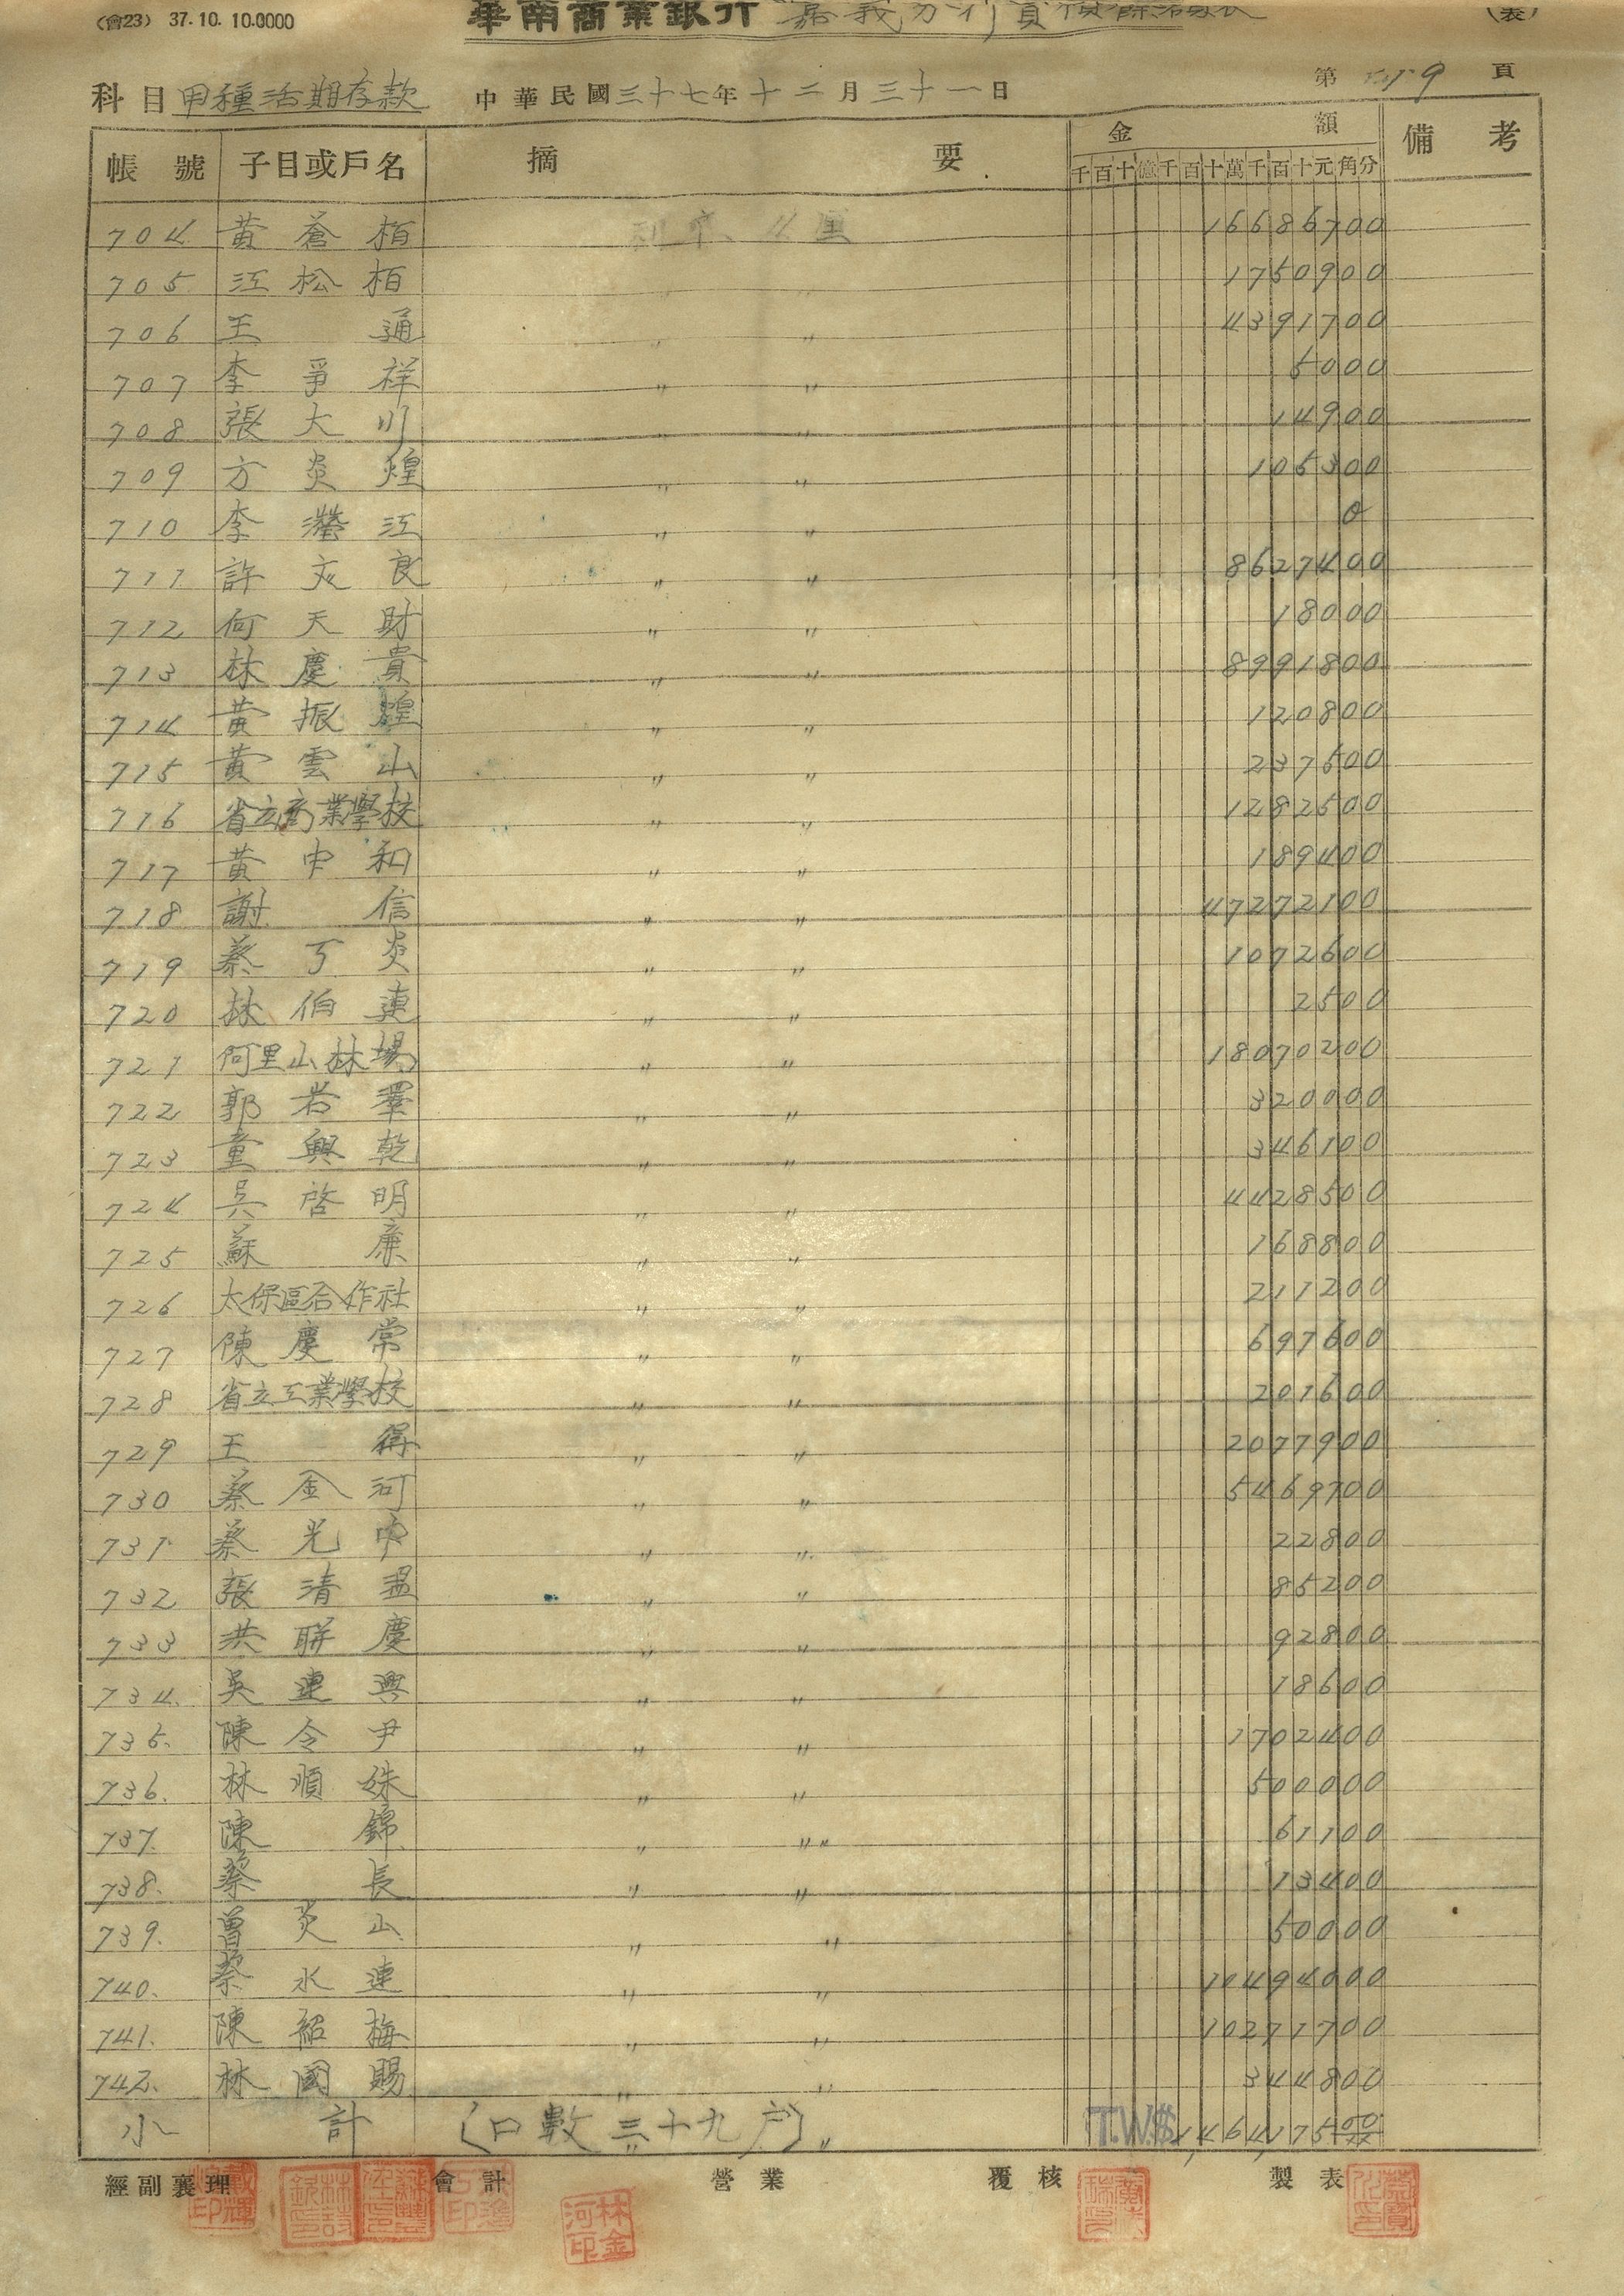 (會23) 37.10. 10.0000
華南商業銀行 嘉義分行資負餘額表
(表)
科目 甲種活期存款 中華民國三十七年十二月三十一日 第 9 頁
帳號 子目或戶名 摘要 金額 備考
千百十億千百十萬千百十元角分
704 黃蒼栢 利率 厘 16686700
705 江松栢 〃 〃 1750900
706 王通 〃 〃 4391700
707 李爭祥 〃 〃 5000
708 張大川 〃 〃 14900
709 方炎煌 〃 〃 105300
710 李瀅江 〃 〃 0
711 許文良 〃 〃 8627400
712 何天財 〃 〃 18000
713 林慶貴 〃 〃 8991800
714 黃振煌 〃 〃 120800
715 黃雲山 〃 〃 237500
716 省立商業學校 〃 〃 1282500
717 黃中和 〃 〃 189400
718 謝信 〃 〃 47272100
719 蔡丁炎 〃 〃 1072600
720 林伯連 〃 〃 2500
721 阿里山林場 〃 〃 18070200
722 郭岩 〃 〃 320000
723 童興乾 〃 〃 346100
724 吳啓明 〃 〃 4428500
725 蘇廉 〃 〃 168800
726 太保區合作社 〃 〃 211200
727 陳慶常 〃 〃 697600
728 省立工業學校 〃 〃 201600
729 王得 〃 〃 2077900
730 蔡金河 〃 〃 5469700
731 蔡光中 〃 〃 22800
732 張清温 〃 〃 85200
733 洪聯慶 〃 〃 92800
734. 吳連興 〃 〃 18600
735. 陳令尹 〃 〃 1702400
736. 林順姝 〃 〃 500000
737. 陳錦 〃 〃〃 61100
738. 蔡長 〃 〃 13400
739. 曾炎山 〃 〃 50000
740. 蔡水連 〃 〃 10494000
741. 陳紹梅 〃 〃 10271700
742. 林國賜 〃 〃 344800
小計 (口數三十九戶) 〃 〃 T.W.$
經副襄理 會計 營業 覆核 製表
林金河印